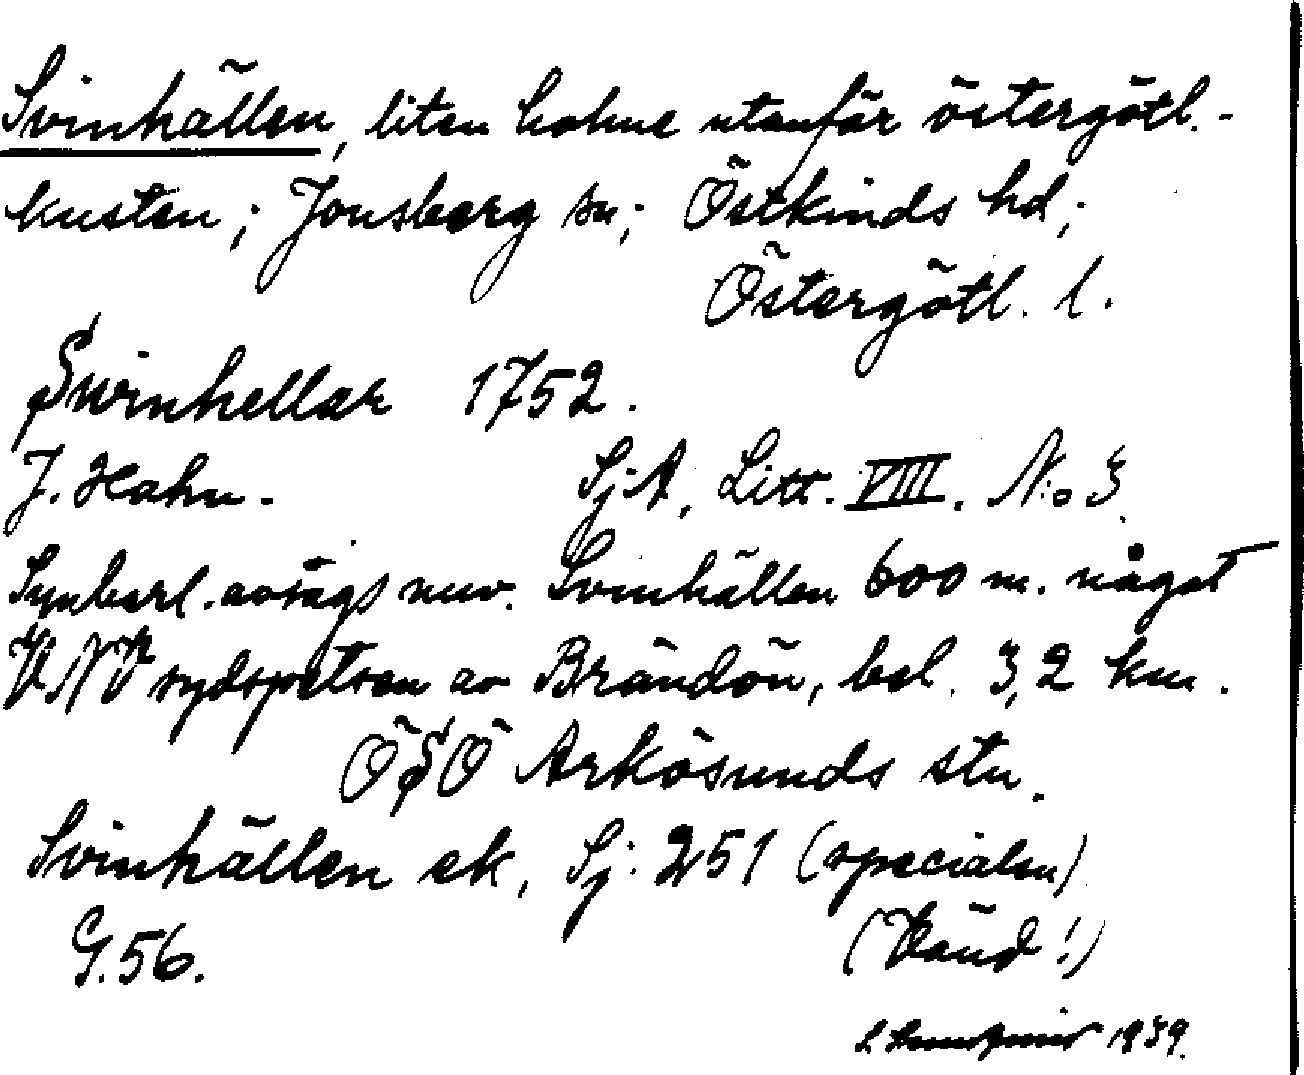 Svinhällen, liten holme utanför östergötl.-
kusten; Jonsberg sn; Östkinds hd;
Östergötl. l.
Swinhellar 1752.
J. Hahn. SjA, Litt. VIII. N:o 3.
Synbarl. avsågs nuv. Svinhällen 600 m. något
VNV sydspetsen av Brändön, bel. 3,2 km.
ÖSÖ Arkösunds stn.
Svinhällen ek, Sj. 251 (specialen)
G. 56. (Vänd!)
1939.